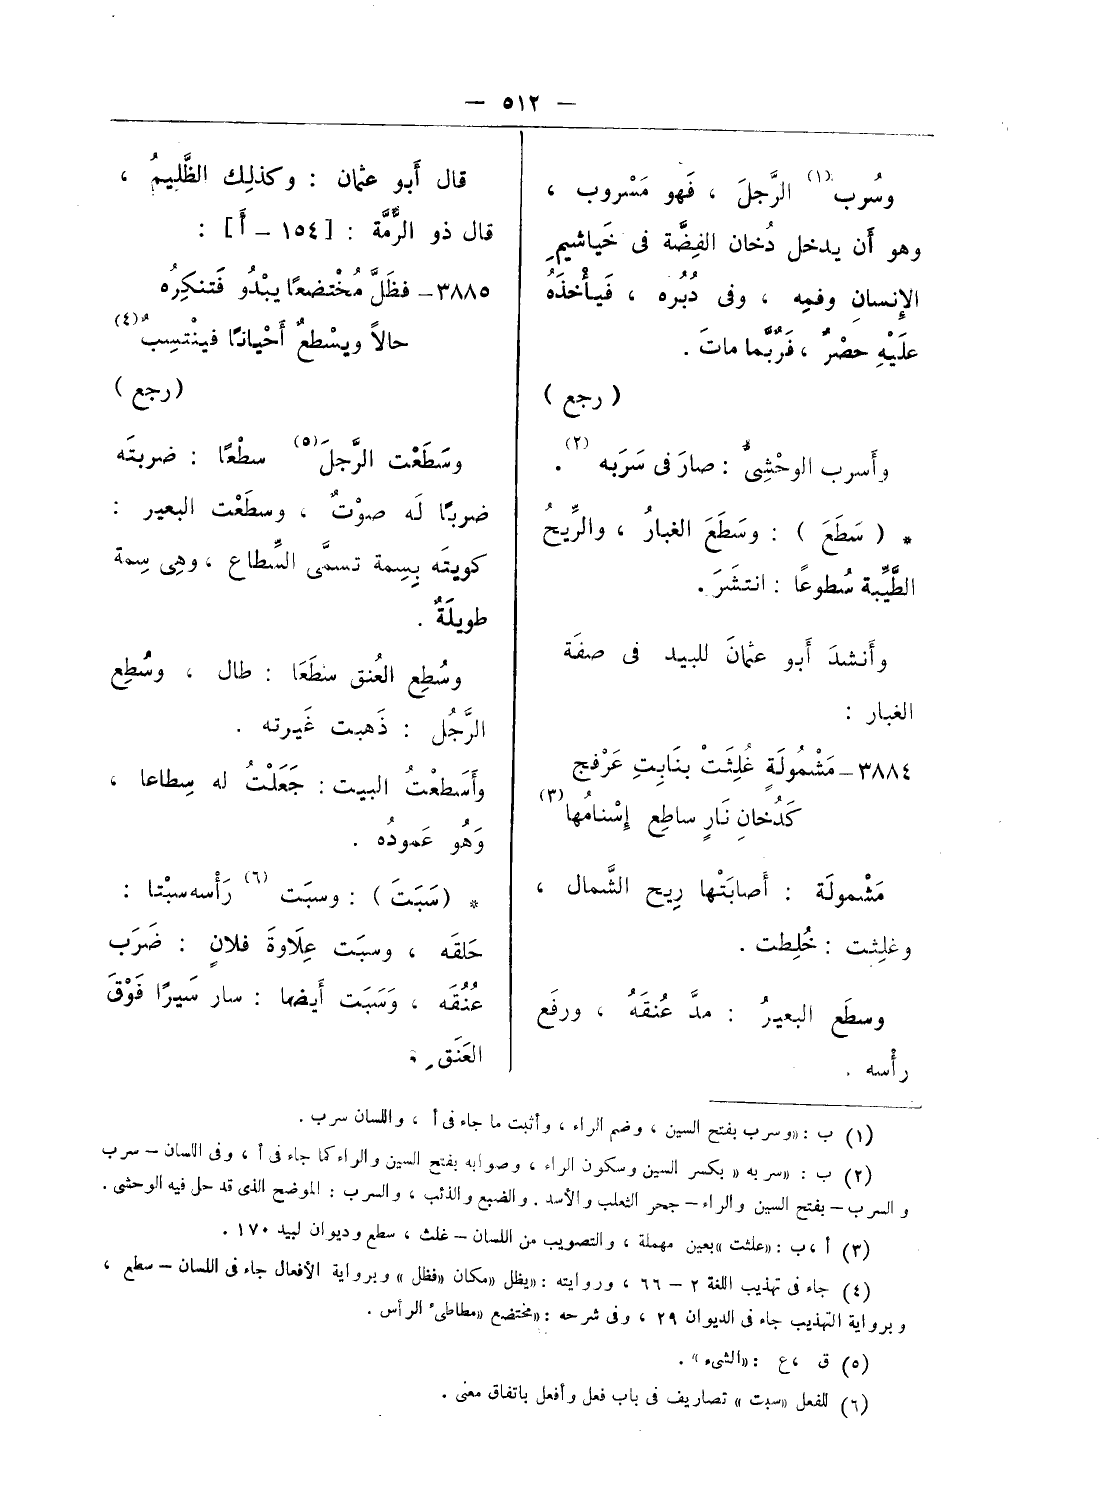 — ٥١٢ —
وسُرب(١) الرَّجلَ ، فَهو مَسْروب ،
وهو أَن يدخل دُخان الفِضَّة فى خَياشيمِ
الإِنسانِ وفمِه ، وفى دُبُره ، فَيأْخذَهُ
علَيْهِ حصْرٌ ، فَرُبَّما ماتَ .
( رجع )
وأَسرب الوحْشِىُّ : صارَ فى سَرَبه (٢) .
* ( سَطَعَ ) : وسَطَعَ الغبارُ ، والرِّيحُ
الطَّيِّبة سُطوعًا : انتشَرَ .
وأَنشدَ أَبو عثمانَ للبيد فى صفَة
الغبار :
٣٨٨٤ – مَشْمُولَةٍ غُلِثَتْ بنَابِتِ عَرْفجٍ
كَدُخانِ نَارٍ ساطِعٍ إِسْنامُها(٣)
مَشْمولَة : أَصابَتْها رِيح الشَّمال ،
وغلِثت : خُلِطت .
وسطَع البعيرُ : مدَّ عُنقَهُ ، ورفَع
رأْسه .
قال أَبو عثمان : وكذلِك الظَّلِيمُ ،
قال ذو الرُّمَّة : [ ١٥٤ – أَ ] :
٣٨٨٥ – فظَلَّ مُخْتضعًا يبْدُو فَتنكِرُه
حالاً ويسْطعُ أَحْيانًا فينْتسِبُ(٤)
(رجع )
وسَطَعْت الرَّجلَ(٥) سطْعًا : ضربتَه
ضربًا لَه صوْتٌ ، وسطَعْت البعير :
كويتَه بِسِمة تسمَّى السِّطاع ، وهِى سِمة
طويلَةٌ .
وسُطِع العُنق سَطَعَا : طال ، وسُطِع
الرَّجُل : ذَهبت غَيرته .
وأَسَطعْتُ البيت : جَعَلْتُ له سِطاعا ،
وَهُو عَمودُه .
* (سَبَتَ ) : وسبَت (٦) رَأْسه سبْتا :
حَلقَه ، وسبَت عِلَاوةَ فلانٍ : ضَرَب
عُنُقَه ، وَسَبَت أَيضا : سار سَيرًا فَوْقَ
العَنَقِ .
(١) ب : «وسرب بفتح السين ، وضم الراء ، وأثبت ما جاء فى أ ، واللسان سرب .
(٢) ب : «سربه » بكسر السين وسكون الراء ، وصوابه بفتح السين والراء كما جاء فى أ ، وفى اللسان – سرب
والسرب – بفتح السين والراء – جحر الثعلب والأسد . والضبع والذئب ، والسرب : الموضح الذى قد حل فيه الوحشى .
(٣) أ ، ب : «علثت » بعين مهملة ، والتصويب من اللسان – غلث ، سطع وديوان لبيد ١٧٠ .
(٤) جاء فى تهذيب اللغة ٢ – ٦٦ ، وروايته : «يظل » مكان «فظل » وبرواية الأفعال جاء فى اللسان – سطع ،
وبرواية التهذيب جاء فى الديوان ٢٩ ، وفى شرحه : «مختضع » مطاطىء الرأس .
(٥) ق ، ع : «الشىء» .
(٦) للفعل «سبت » تصاريف فى باب فعل وأفعل باتفاق معنى .